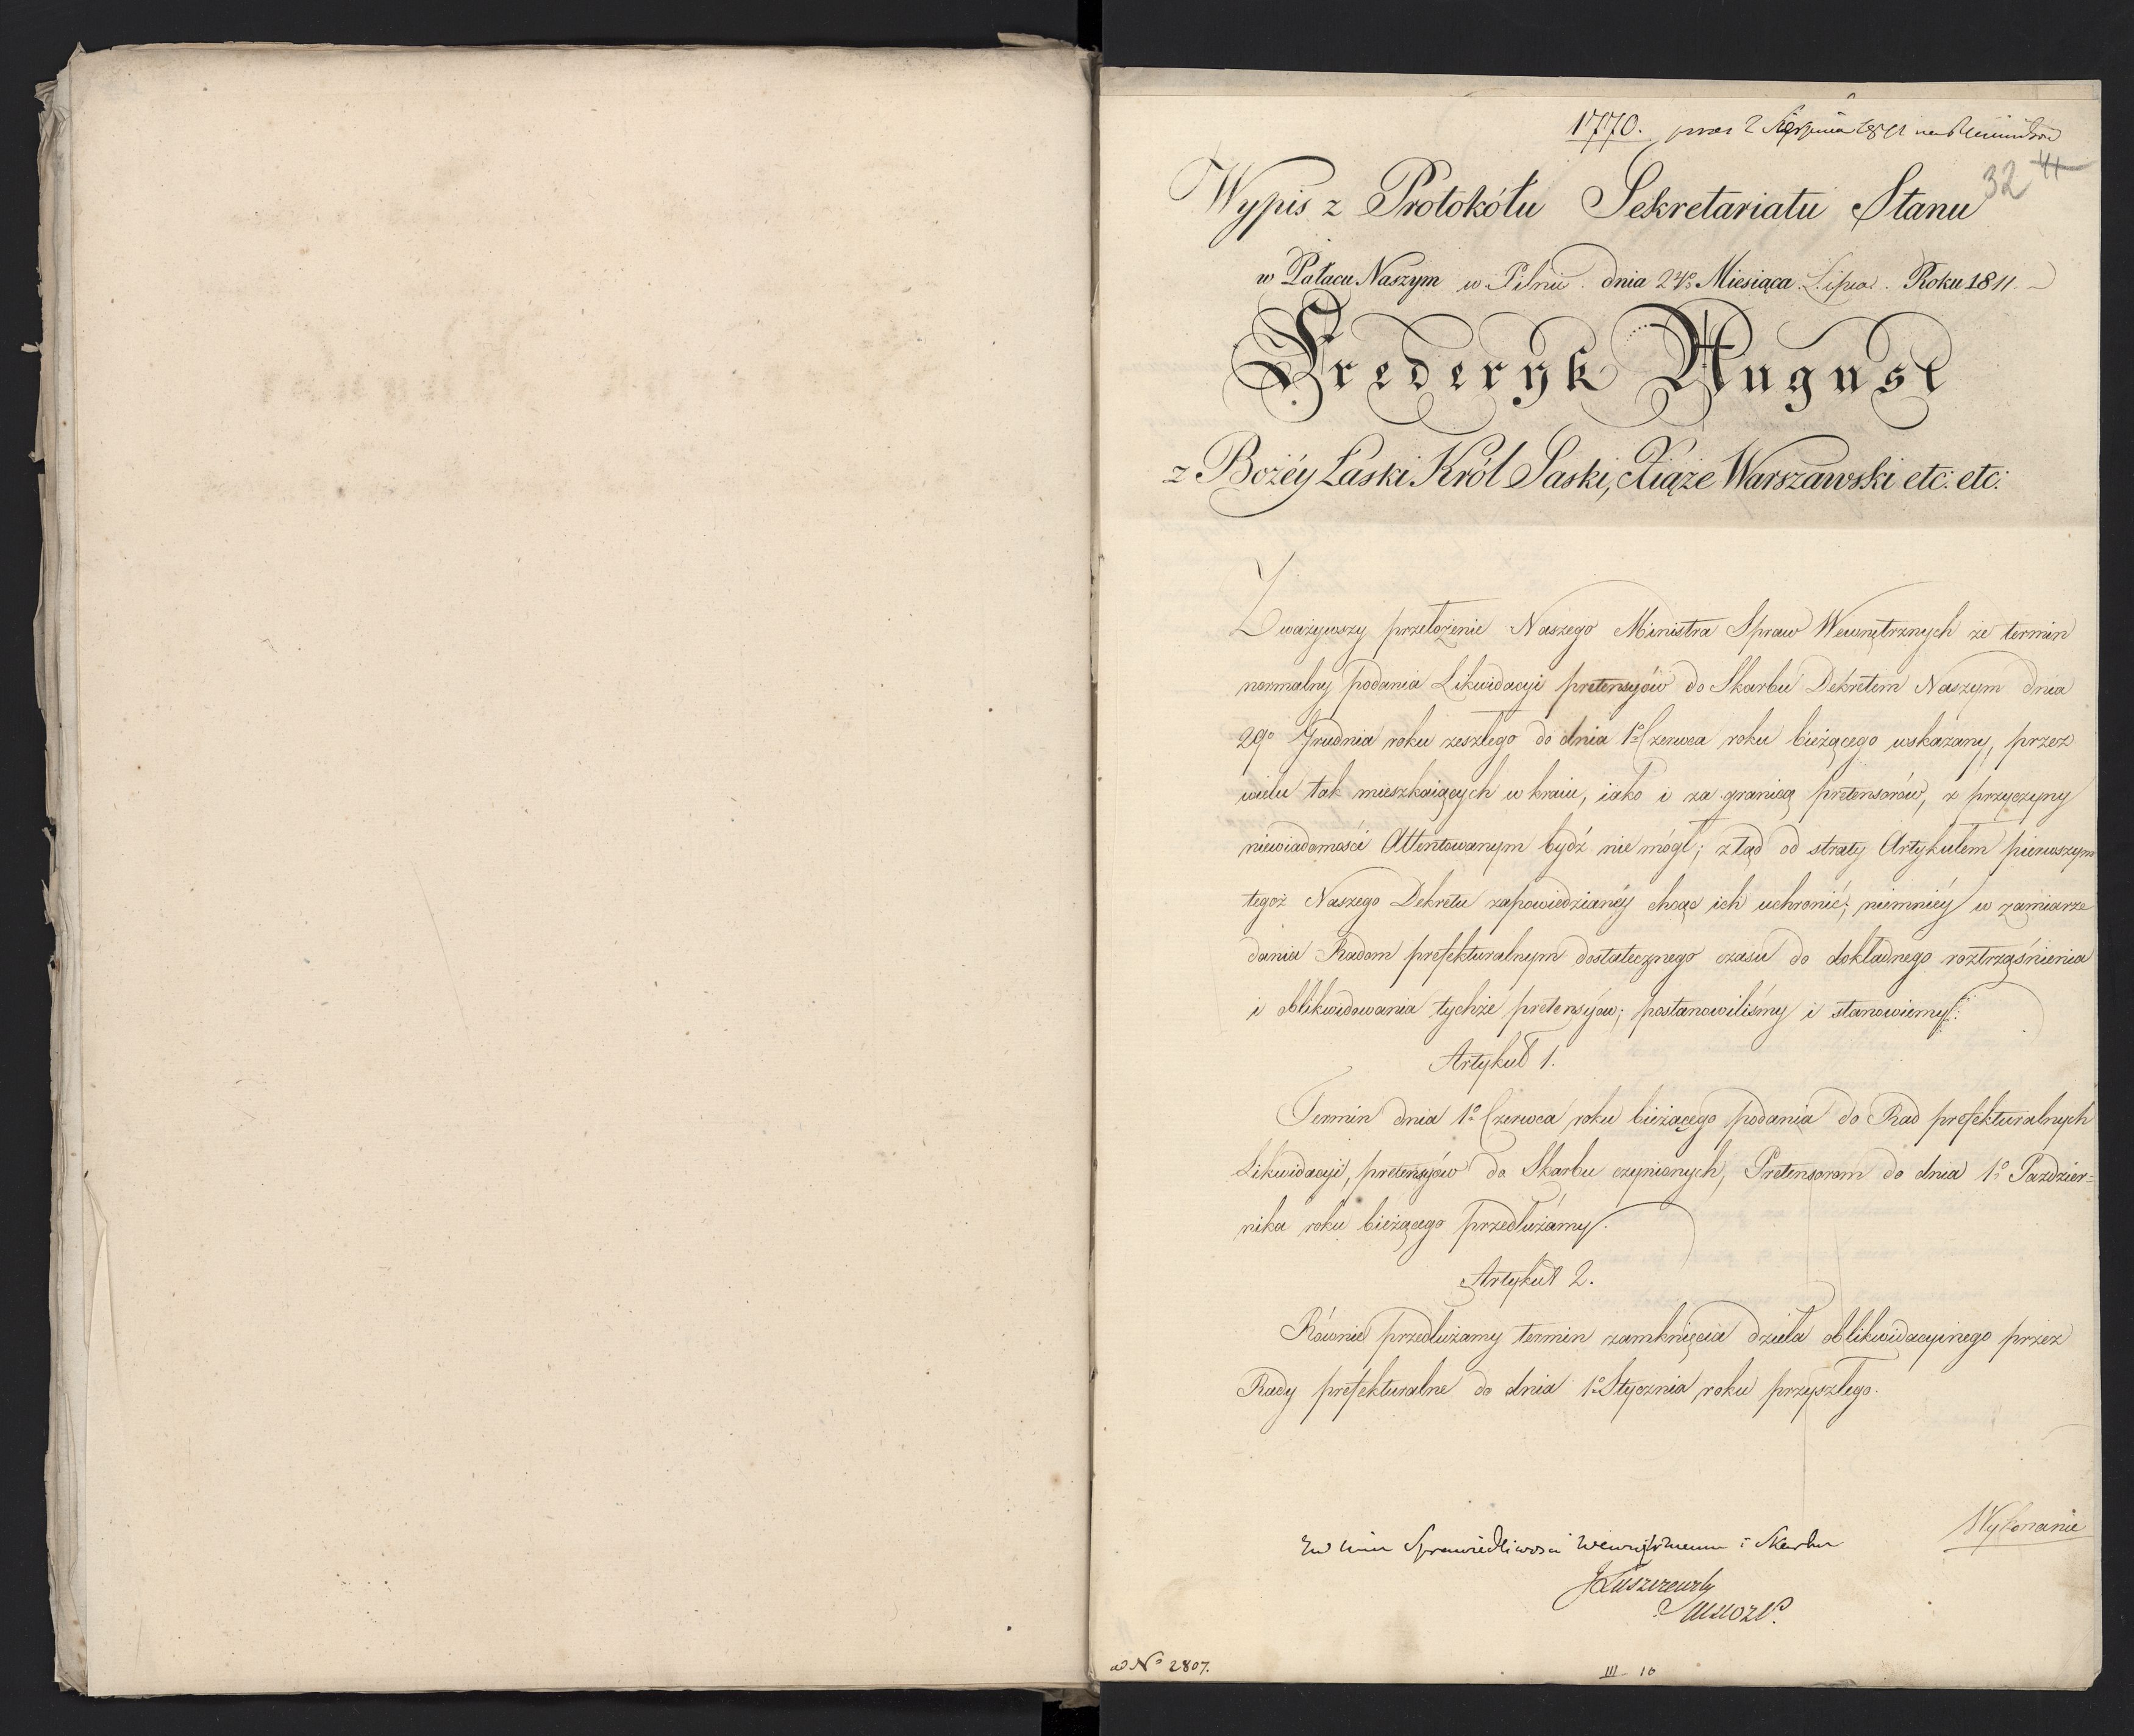 1770. 2 Sierpnia 1811
32 41
Wypis z Protokółu Sekretariatu Stanu
w Pałacu Naszym w Pilnic. dnia 24º Miesiąca Lipca. Roku 1811.
Frederyk August
z Bożéy Łaski Król Saski, Xiąże Warszawski etc: etc:
Zważywszy przełożenie Naszego Ministra Spraw Wewnętrznych że termin
normalny podania Likwidacyi pretensyów do Skarbu Dekretem Naszym dnia
29º Grudnia roku zeszłego do dnia 1º Czerwca roku bieżącego wskazany, przez
wielu tak mieszkaiących w kraiu, iako i za granicą pretensorów, z przyczyny
niewiadomości Attentowanym bydź nie mógł; ztąd od straty Artykułem pierwszym
tegoż Naszego Dekretu zapowiedzianéy chcąc ich uchronić; niemniéy w zamiarze
dania Radom prefekturalnym dostatecznego czasu do dokładnego roztrząśnienia
i oblikwidowania tychże pretensyów; postanowiliśmy i stanowiemy:
Artykuł 1.
Termin dnia 1º Czerwca roku bieżącego podania do Rad prefekturalnych
Likwidacyi, pretensyów do Skarbu czynionych, Pretensorom do dnia 1º Paździer=
nika roku bieżącego przedłużamy.
Artykuł 2.
Równie przedłużamy termin zamknięcia dzieła oblikwidacyinego przez
Rady prefekturalne do dnia 1º Stycznia roku przyszłego.
Wykonanie
Sprawiedliwości Wewnętrznemu i Skarbu
JŁuszczewski
ad Nº 2807.
III 10